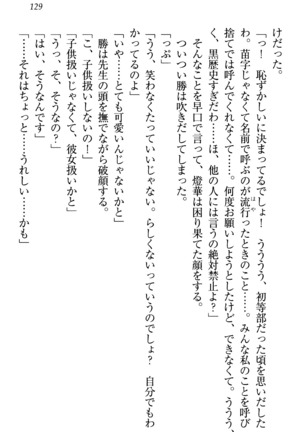 129
けだった。
「っ！　恥ずかしいに決まってるでしょ！　うううう、初等部だった頃を思いだした
わ。苗字じゃなくて名前で呼ぶのが流行ったときのこと……。みんな私のことを呼び
捨てでは呼んでくれなくて……。何度お願いしようとしたけど、できなくて。ううう、
黒歴史すぎだわ……ほ、他の人には言うの絶対禁止よ？」
そんなことを早口で言って、燈華は困り果てた顔をする。
ついつい勝は吹きだしてしまった。
「ぷっ」
「うう、笑わなくたっていいじゃない。らしくないっていうのでしょ？　自分でもわ
かってるのよ」
「いや……とても可愛いんじゃないかと」
勝は先生の頭を撫でながら破顔する。
「こ、子供扱いしないの！」
「子供扱いじゃなくて、彼女扱いかと」
「うっ、そ、そうなの？」
「はい、そうなんです」
「……それはちょっと……うれしい……かも」